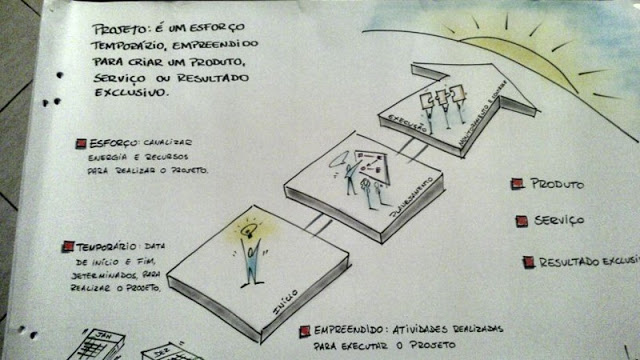 PROJETO: É UM ESFORÇO
TEMPORÁRIO, EMPREENDIDO
PARA CRIAR UM PRODUTO,
SERVIÇO OU RESULTADO
EXCLUSIVO.
ESFORÇO: CANALIZAR
ENERGIA E RECURSOS
PARA REALIZAR O PROJETO.
TEMPORÁRIO: DATA
DE INÍCIO E FIM,
DETERMINADOS, PARA
REALIZAR O PROJETO.
JAN
DEZ
INÍCIO
PLANEJAMENTO
EXECUÇÃO
MONITORAMENTO E CONTROLE
PRODUTO
SERVIÇO
RESULTADO EXCLUSIV
EMPREENDIDO: ATIVIDADES REALIZADAS
PARA EXECUTAR O PROJETO